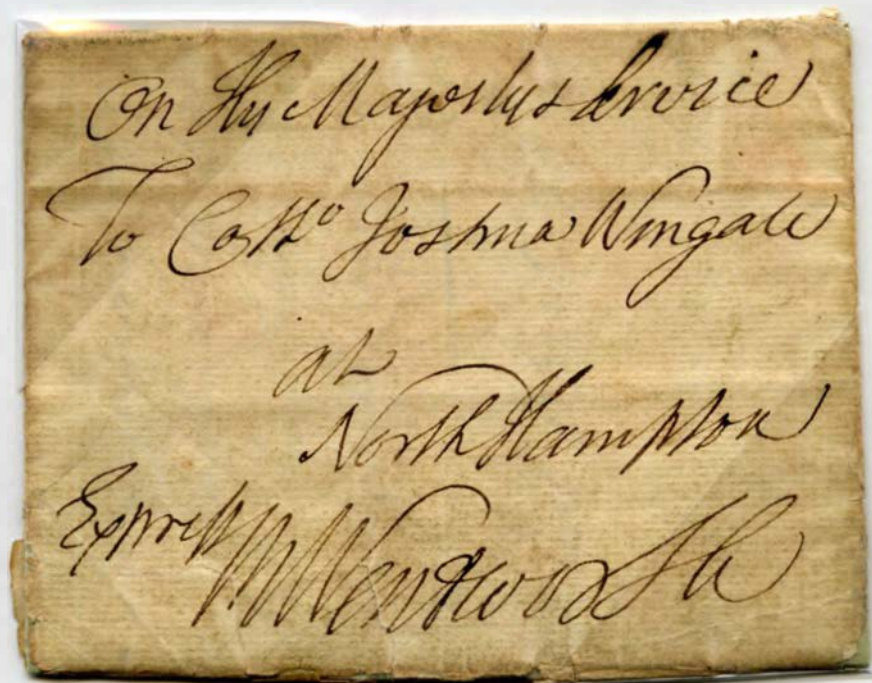 On His Majestys Service
To Collo Joshua Wingate
at
North Hampton
Express MWentworth